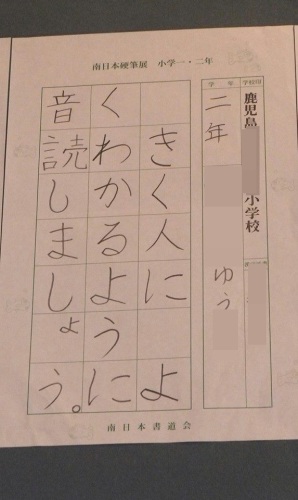 南日本硬筆展　小学一・二年
学校印
鹿児島
小学校
学年
二年
ゆう
きく人によ
くわかるように
音読しましょう。
南日本書道会